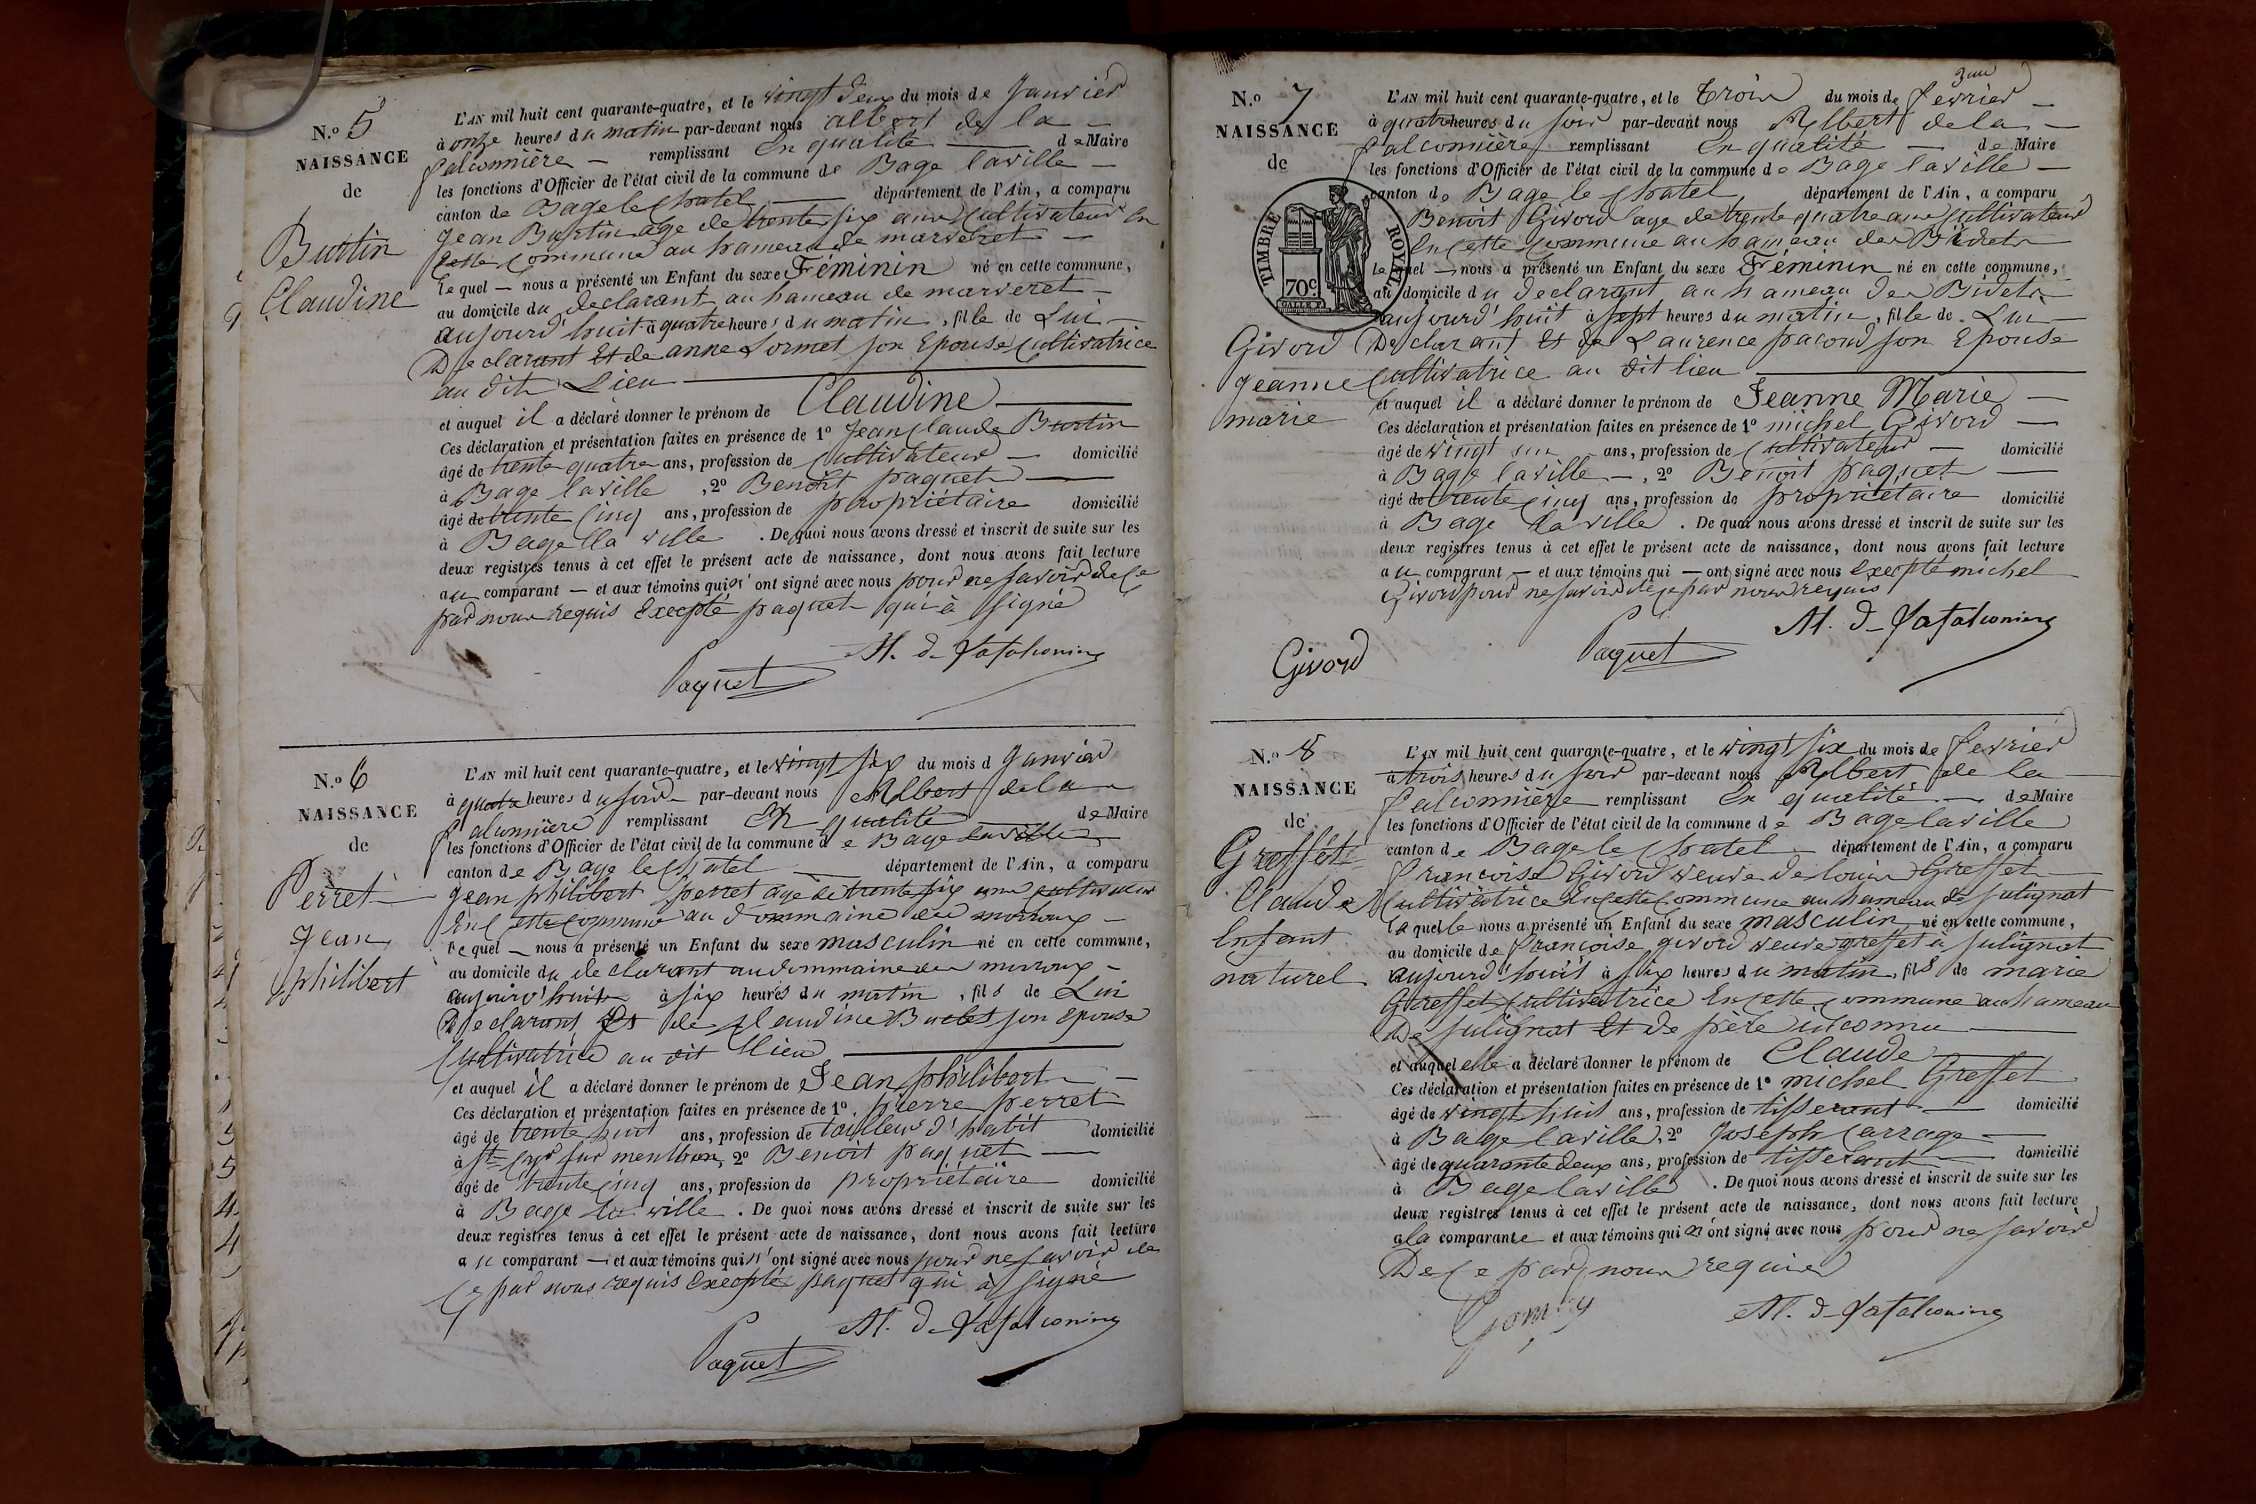 N.o 5
NAISSANCE
de
Burtin
Claudine
L'AN mil huit cent quarante-quatre, et le vingt deux du mois de Janvier
à onze heures du matin par-devant nous albert de la
falconnière remplissant En qualité de Maire
les fonctions d'Officier de l'état civil de la commune de Bage laville
canton de Bage le Chatel département de l'Ain, a comparu
Jean Burtin age de trente six ans Cultivateur En
Cette Commune au hameau de marveret
Le quel nous a présenté un Enfant du sexe Féminin né en cette commune,
au domicile du declarant au hameau de marveret
aujourd'huit à quatre heures du matin, fille de Lui
Declarant Et de anne Lormet son Epouse Cultivatrice
au dit Lieu
et auquel il a déclaré donner le prénom de Claudine
Ces déclaration et présentation faites en présence de 1º Jean Claude Burtin
âgé de trente quatre ans, profession de Cultivateur domicilié
à Bage laville, 2º Benoit paquet
âgé de trente Cinq ans, profession de propriétaire domicilié
à Bage la ville. De quoi nous avons dressé et inscrit de suite sur les
deux registres tenus à cet effet le présent acte de naissance, dont nous avons fait lecture
au comparant et aux témoins qui n'ont signé avec nous pour ne savoir de Ce
par nous requis Excepté paquet qui à signé
Paquet
Al. d. Lafalconière
N.o 6
NAISSANCE
de
Perret
Jean
philibert
L'AN mil huit cent quarante-quatre, et le vingt six du mois d Janvier
à quatre heures du soir par-devant nous Albert de la
falconnière remplissant En qualité de Maire
les fonctions d'Officier de l'état civil de la commune de Bage laville
canton de Bage le Chatel département de l'Ain, a comparu
Jean philibert perret age de trente six ans cultivateur
En Cette commune au dommaine des
Le quel nous a présenté un Enfant du sexe masculin né en cette commune,
au domicile du declarant au dommaine des
aujourd'huit à six heures du matin, fils de Lui
Declarant Et de Claudine son Epouse
Cultivatrice au dit Lieu
et auquel il a déclaré donner le prénom de Jean philibert
Ces déclaration et présentation faites en présence de 1º pierre perret
âgé de trente huit ans, profession de tailleur d'habit domicilié
à St Cyr sur menthon, 2º Benoit paquet
âgé de trente Cinq ans, profession de propriétaire domicilié
à Bage la ville. De quoi nous avons dressé et inscrit de suite sur les
deux registres tenus à cet effet le présent acte de naissance, dont nous avons fait lecture
au comparant et aux témoins qui n'ont signé avec nous pour ne savoir de
Ce par nous requis Excepté paquet qui à signé
Al. d. Lafalconière
Paquet
N.o 7
NAISSANCE
de
TIMBRE ROYAL
70c
Givord
Jeanne
marie
L'AN mil huit cent quarante-quatre, et le Trois du mois de fevrier
à quatre heures du soir par-devant nous Albert de la
falconnière remplissant En qualité de Maire
les fonctions d'Officier de l'état civil de la commune de Bage laville
canton de Bage le Chatel département de l'Ain, a comparu
Benoit Givord age de trente quatre ans Cultivateur
En Cette Commune au hameau des Bidets
Le quel nous a présenté un Enfant du sexe Féminin né en cette commune,
au domicile du declarant au hameau des Bidets
aujourd'huit à sept heures du matin, fille de Lui
Declarant Et de Laurence pacoud son Epouse
Cultivatrice au dit lieu
et auquel il a déclaré donner le prénom de Jeanne Marie
Ces déclaration et présentation faites en présence de 1º michel Givord
âgé de vingt un ans, profession de Cultivateur domicilié
à Bage laville, 2º Benoit paquet
âgé de trente Cinq ans, profession de propriétaire domicilié
à Bage la ville. De quoi nous avons dressé et inscrit de suite sur les
deux registres tenus à cet effet le présent acte de naissance, dont nous avons fait lecture
au comparant et aux témoins qui ont signé avec nous Excepté michel
Givord pour ne savoir de Ce par nous requis
Givord
Paquet
Al. d. Lafalconière
N.o 8
NAISSANCE
de
Greffet
Claude
Enfant
naturel
L'AN mil huit cent quarante-quatre, et le vingt six du mois de fevrier
à trois heures du soir par-devant nous Albert de la
falconnière remplissant En qualité de Maire
les fonctions d'Officier de l'état civil de la commune de Bage laville
canton de Bage le Chatel département de l'Ain, a comparu
françoise Givord veuve de louis Greffet
Cultivatrice En Cette Commune au hameau de sulignat
la quelle nous a présenté un Enfant du sexe masculin né en cette commune,
au domicile de françoise givord veuve greffet à sulignat
aujourd'huit à six heures du matin, fils de marie
Greffet Cultivatrice En Cette Commune au hameau
De sulignat Et de père inconnu
et auquel elle a déclaré donner le prénom de Claude
Ces déclaration et présentation faites en présence de 1º michel Greffet
âgé de vingt huit ans, profession de tisserant domicilié
à Bage laville, 2º Joseph Carrage
âgé de quarante deux ans, profession de tisserant domicilié
à Bage laville. De quoi nous avons dressé et inscrit de suite sur les
deux registres tenus à cet effet le présent acte de naissance, dont nous avons fait lecture
a la comparante et aux témoins qui n'ont signé avec nous pour ne savoir
De Ce par nous requis
Al. d. Lafalconière